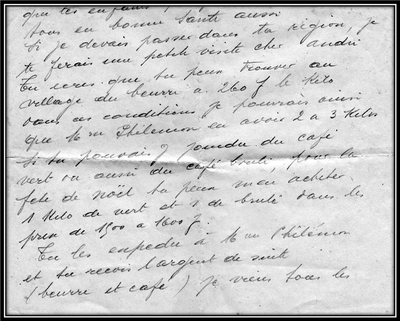 que les enfants
tous en bonne santé aussi
Si je devais passer dans ta région, je
te ferais une petite visite cher andré
Tu ecris que tu peux trouver au
village du beurri a 260 f le Kilo
dans ces conditions je pourrais ainsi
que Mm Philémon en avoir 2 a 3 Kilos
Si tu pouvais y joindre du café
vert ou aussi du café brulé, pour la
fete de noël tu peux men acheter
1 Kilo de vert et 1 de brulé dans les
prix de 1500 a 1600 f.
Tu les expedu à Mm Philémon
et tu recois l'argent de suite
(beurre et café) je viens tous les